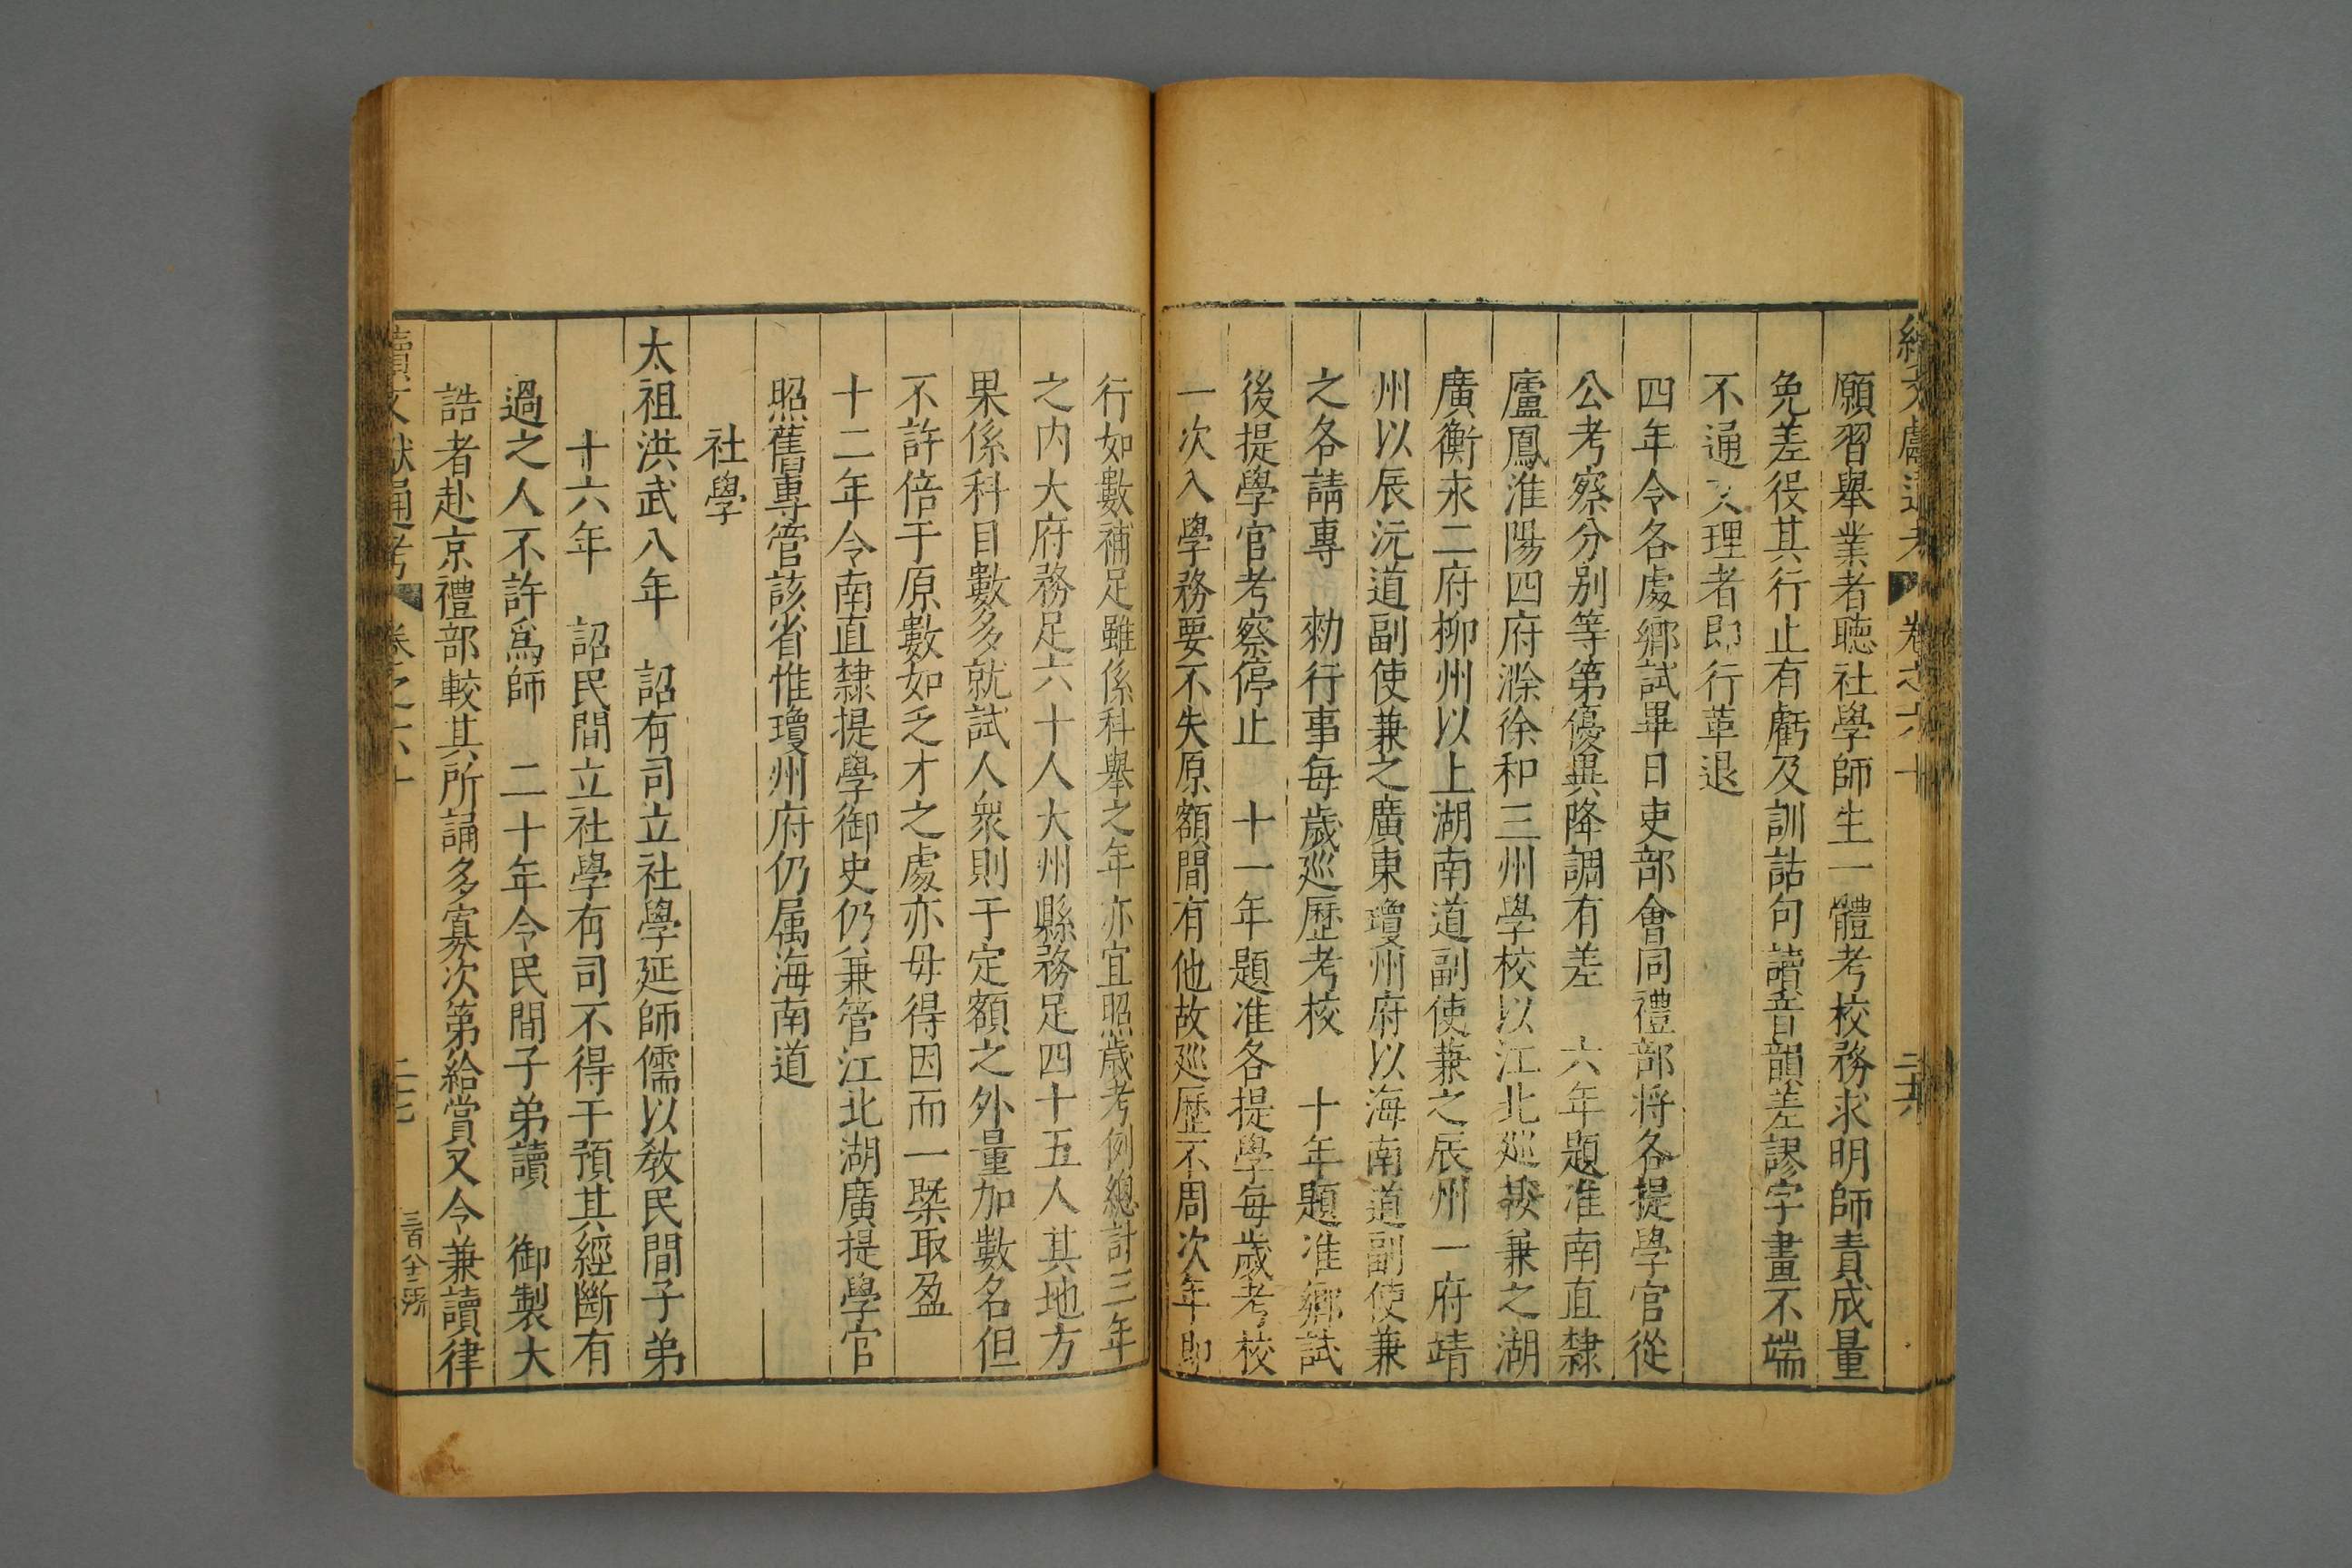 續文獻通考 卷之六十 二十六
願習舉業者聽社學師生一體考校務求明師責成量
免差役其行止有虧及訓詁句讀音韻差謬字畫不端
不通文理者即行革退
四年令各處鄉試畢日吏部會同禮部將各提學官從
公考察分别等第優異降調有差 六年題准南直隸
廬鳳淮陽四府滁徐和三州學校以江北巡按兼之湖
廣衡永二府柳州以上湖南道副使兼之辰州一府靖
州以辰沅道副使兼之廣東瓊州府以海南道副使兼
之各請專 勑行事每歲巡歷考校 十年題准鄉試
後提學官考察停止 十一年題准各提學每歲考校
一次入學務要不失原額間有他故巡歷不周次年即
行如數補足雖係科舉之年亦宜照歲考例總計三年
之内大府務足六十人大州縣務足四十五人其地方
果係科目數多就試人衆則于定額之外量加數名但
不許倍于原數如乏才之處亦毋得因而一槩取盈
十二年令南直隸提學御史仍兼管江北湖廣提學官
照舊專管該省惟瓊州府仍属海南道
社學
太祖洪武八年 詔有司立社學延師儒以教民間子弟
十六年 詔民間立社學有司不得干預其經斷有
過之人不許爲師 二十年令民間子弟讀 御製大
誥者赴京禮部較其所誦多寡次第給賞又令兼讀律
續文獻通考 卷之六十 二十七